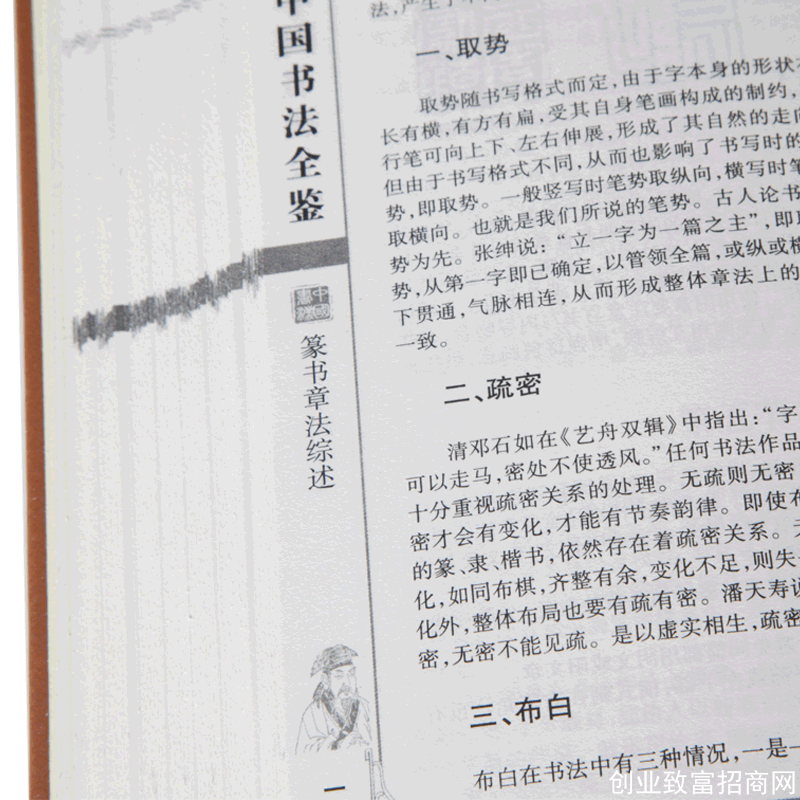 中国书法全鉴
篆书章法综述
法,产生了
一、取势
取势随书写格式而定,由于字本身的形状
长有横,有方有扁,受其自身笔画构成的制约,
行笔可向上下、左右伸展,形成了其自然的走向
但由于书写格式不同,从而也影响了书写时的
势,即取势。一般竖写时笔势取纵向,横写时笔
取横向。也就是我们所说的笔势。古人论书
势为先。张绅说:“立一字为一篇之主”,即
势,从第一字即已确定,以管领全篇,或纵或横
下贯通,气脉相连,从而形成整体章法上的
一致。
二、疏密
清邓石如在《艺舟双辑》中指出:“字
可以走马,密处不使透风。”任何书法作品
十分重视疏密关系的处理。无疏则无密
密才会有变化,才能有节奏韵律。即使布
的篆、隶、楷书,依然存在着疏密关系。
化,如同布棋,齐整有余,变化不足,则失
化外,整体布局也要有疏有密。潘天寿说
密,无密不能见疏。是以虚实相生,疏密
三、布白
布白在书法中有三种情况,一是一
一
创业致富招商网